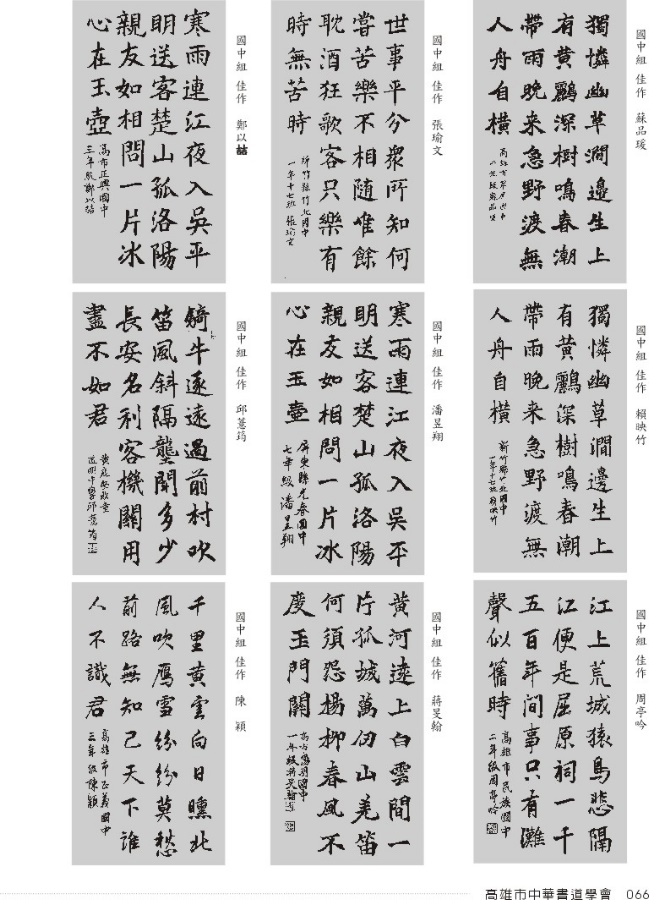 國中組 佳作
獨憐幽草澗邊生上
有黃鸝深樹鳴春潮
帶雨晚来急野渡無
人舟自橫
國中組 佳作 張瑜文
世事平分衆所知何
嘗苦樂不相隨惟餘
耽酒狂歌客只樂有
時無苦時
國中組 佳作 鄭以喆
寒雨連江夜入吳平
明送客楚山孤洛陽
親友如相問一片冰
心在玉壺
高市正興國中
三年級鄭以喆
國中組 佳作 賴映竹
獨憐幽草澗邊生上
有黃鸝深樹鳴春潮
帶雨晚来急野渡無
人舟自橫
國中組 佳作 潘昱翔
寒雨連江夜入吳平
明送客楚山孤洛陽
親友如相問一片冰
心在玉壺
屏東縣光春國中
七年級潘昱翔
國中組 佳作 邱薏筠
騎牛逐遠過前村吹
笛風斜隔壟聞多少
長安名利客機關用
盡不如君
國中組 佳作 周亭吟
江上荒城猿鳥悲隔
江便是屈原祠一千
五百年間事只有灘
聲似舊時
高雄市民族國中
二年級周亭吟
國中組 佳作 蔣旻翰
黃河遠上白雲間一
片孤城萬仞山羌笛
何須怨楊柳春風不
度玉門關
國中組 佳作 陳 穎
千里黃雲向日曛北
風吹鴈雪紛紛莫愁
前路無知己天下誰
人不識君
高雄市正義國中
三年級陳穎
高雄市中華書道學會 066